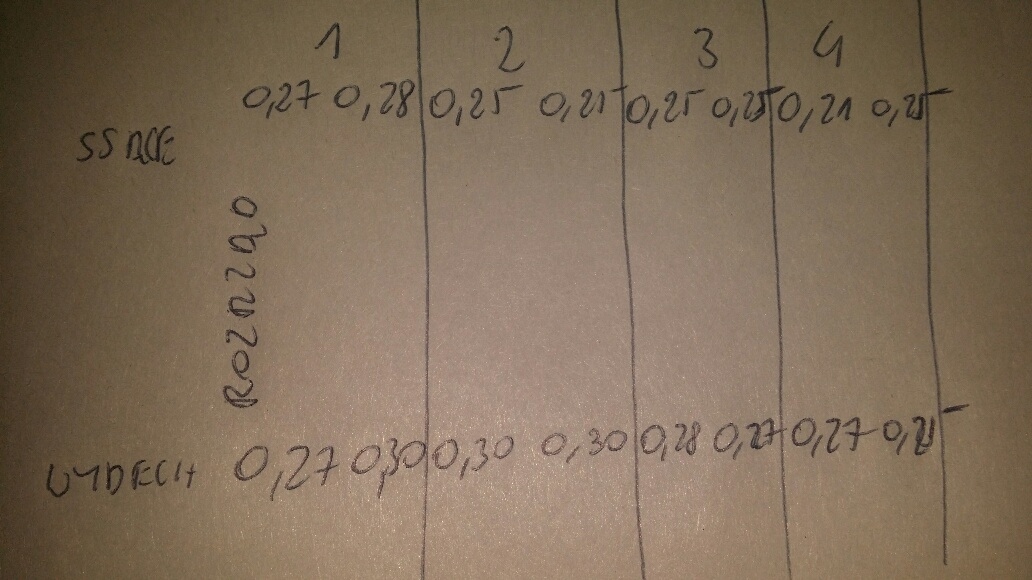 1 2 3 4
0,27 0,28 0,25 0,25 0,25 0,25 0,21 0,25
SSĄCE
ROZRZĄD
0,27 0,30 0,30 0,30 0,28 0,27 0,27 0,25
WYDECH